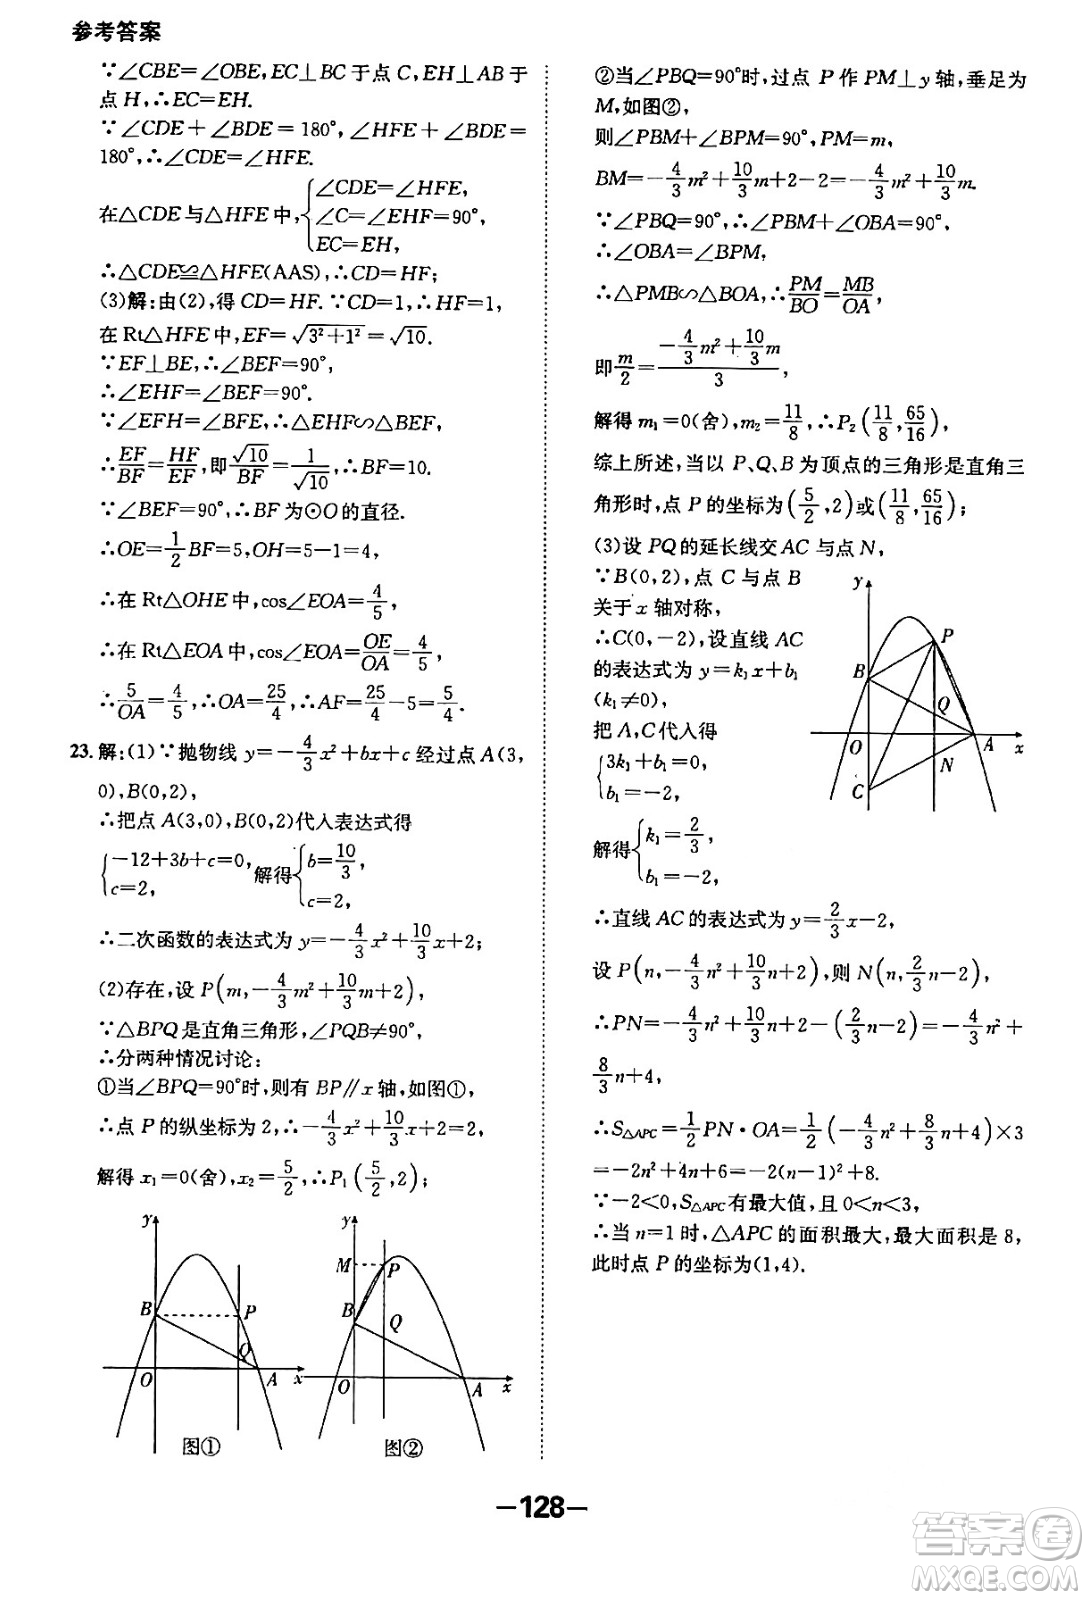 参考答案
∵∠CBE=∠OBE,EC⊥BC于点C,EH⊥AB于
点H,∴EC=EH.
∵∠CDE+∠BDE=180°,∠HFE+∠BFE=
180°,∴∠CDE=∠HFE.
在△CDE与△HFE中,{∠CDE=∠HFE,
∠C=∠EHF=90°,
EC=EH,
∴△CDE≌△HFE(AAS),∴CD=HF;
(3)解:由(2),得CD=HF.∵CD=1,∴HF=1,
在Rt△HFE中,EF=√(3²+1²)=√10.
∵EF⊥BE,∴∠BEF=90°.
∴∠EHF=∠BEF=90°.
∵∠EFH=∠BFE,∴△EHF∽△BEF,
∴EF/BF=HF/EF,即√10/BF=1/√10,∴BF=10.
∵∠BEF=90°,∴BF为⊙O的直径.
∴OE=1/2BF=5,OH=5-1=4,
∴在Rt△OHE中,cos∠EOA=4/5,
∴在Rt△EOA中,cos∠EOA=OE/OA=4/5,
∴5/OA=4/5,∴OA=25/4,∴AF=25/4-5=5/4.
23.解:(1)∵抛物线y=-4/3x²+bx+c经过点A(3,
0),B(0,2),
∴把点A(3,0),B(0,2)代入表达式得
{-12+3b+c=0,
c=2,解得{b=10/3,
c=2.
∴二次函数的表达式为y=-4/3x²+10/3x+2;
(2)存在,设P(m,-4/3m²+10/3m+2),
∵△BPQ是直角三角形,∠PQB≠90°,
∴分两种情况讨论:
①当∠BPQ=90°时,则有BP∥x轴,如图①,
∴点P的纵坐标为2,∴-4/3x²+10/3x+2=2,
解得x₁=0(舍),x₂=5/2,∴P₁(5/2,2);
y
B
P
Q
O
A
x
图①
y
M
P
B
Q
O
A
x
图②
②当∠PBQ=90°时,过点P作PM⊥y轴,垂足为
M,如图②,
则∠PBM+∠BPM=90°,PM=m,
BM=-4/3m²+10/3m+2-2=-4/3m²+10/3m.
∵∠PBQ=90°,∴∠PBM+∠OBA=90°,
∴∠OBA=∠BPM,
∴△PMB∽△BOA,∴PM/BO=MB/OA,
即m/2=(-4/3m²+10/3m)/3,
解得m₁=0(舍),m₂=11/8,∴P₂(11/8,65/16),
综上所述,当以P、Q、B为顶点的三角形是直角三
角形时,点P的坐标为(5/2,2)或(11/8,65/16);
(3)设PQ的延长线交AC与点N,
∵B(0,2),点C与点B
关于x轴对称,
∴C(0,-2),设直线AC
的表达式为y=k₁x+b₁
(k₁≠0),
把A,C代入得
{3k₁+b₁=0,
b₁=-2,
解得{k₁=2/3,
b₁=-2,
y
P
B
Q
O
A
x
N
C
∴直线AC的表达式为y=2/3x-2,
设P(n,-4/3n²+10/3n+2),则N(n,2/3n-2),
∴PN=-4/3n²+10/3n+2-(2/3n-2)=-4/3n²+
8/3n+4,
∴S△APC=1/2PN·OA=1/2(-4/3n²+8/3n+4)×3
=-2n²+4n+6=-2(n-1)²+8.
∵-2<0,S△APC有最大值,且0<n<3,
∴当n=1时,△APC的面积最大,最大面积是8,
此时点P的坐标为(1,4).
-128-
答案卷
MXQE.COM